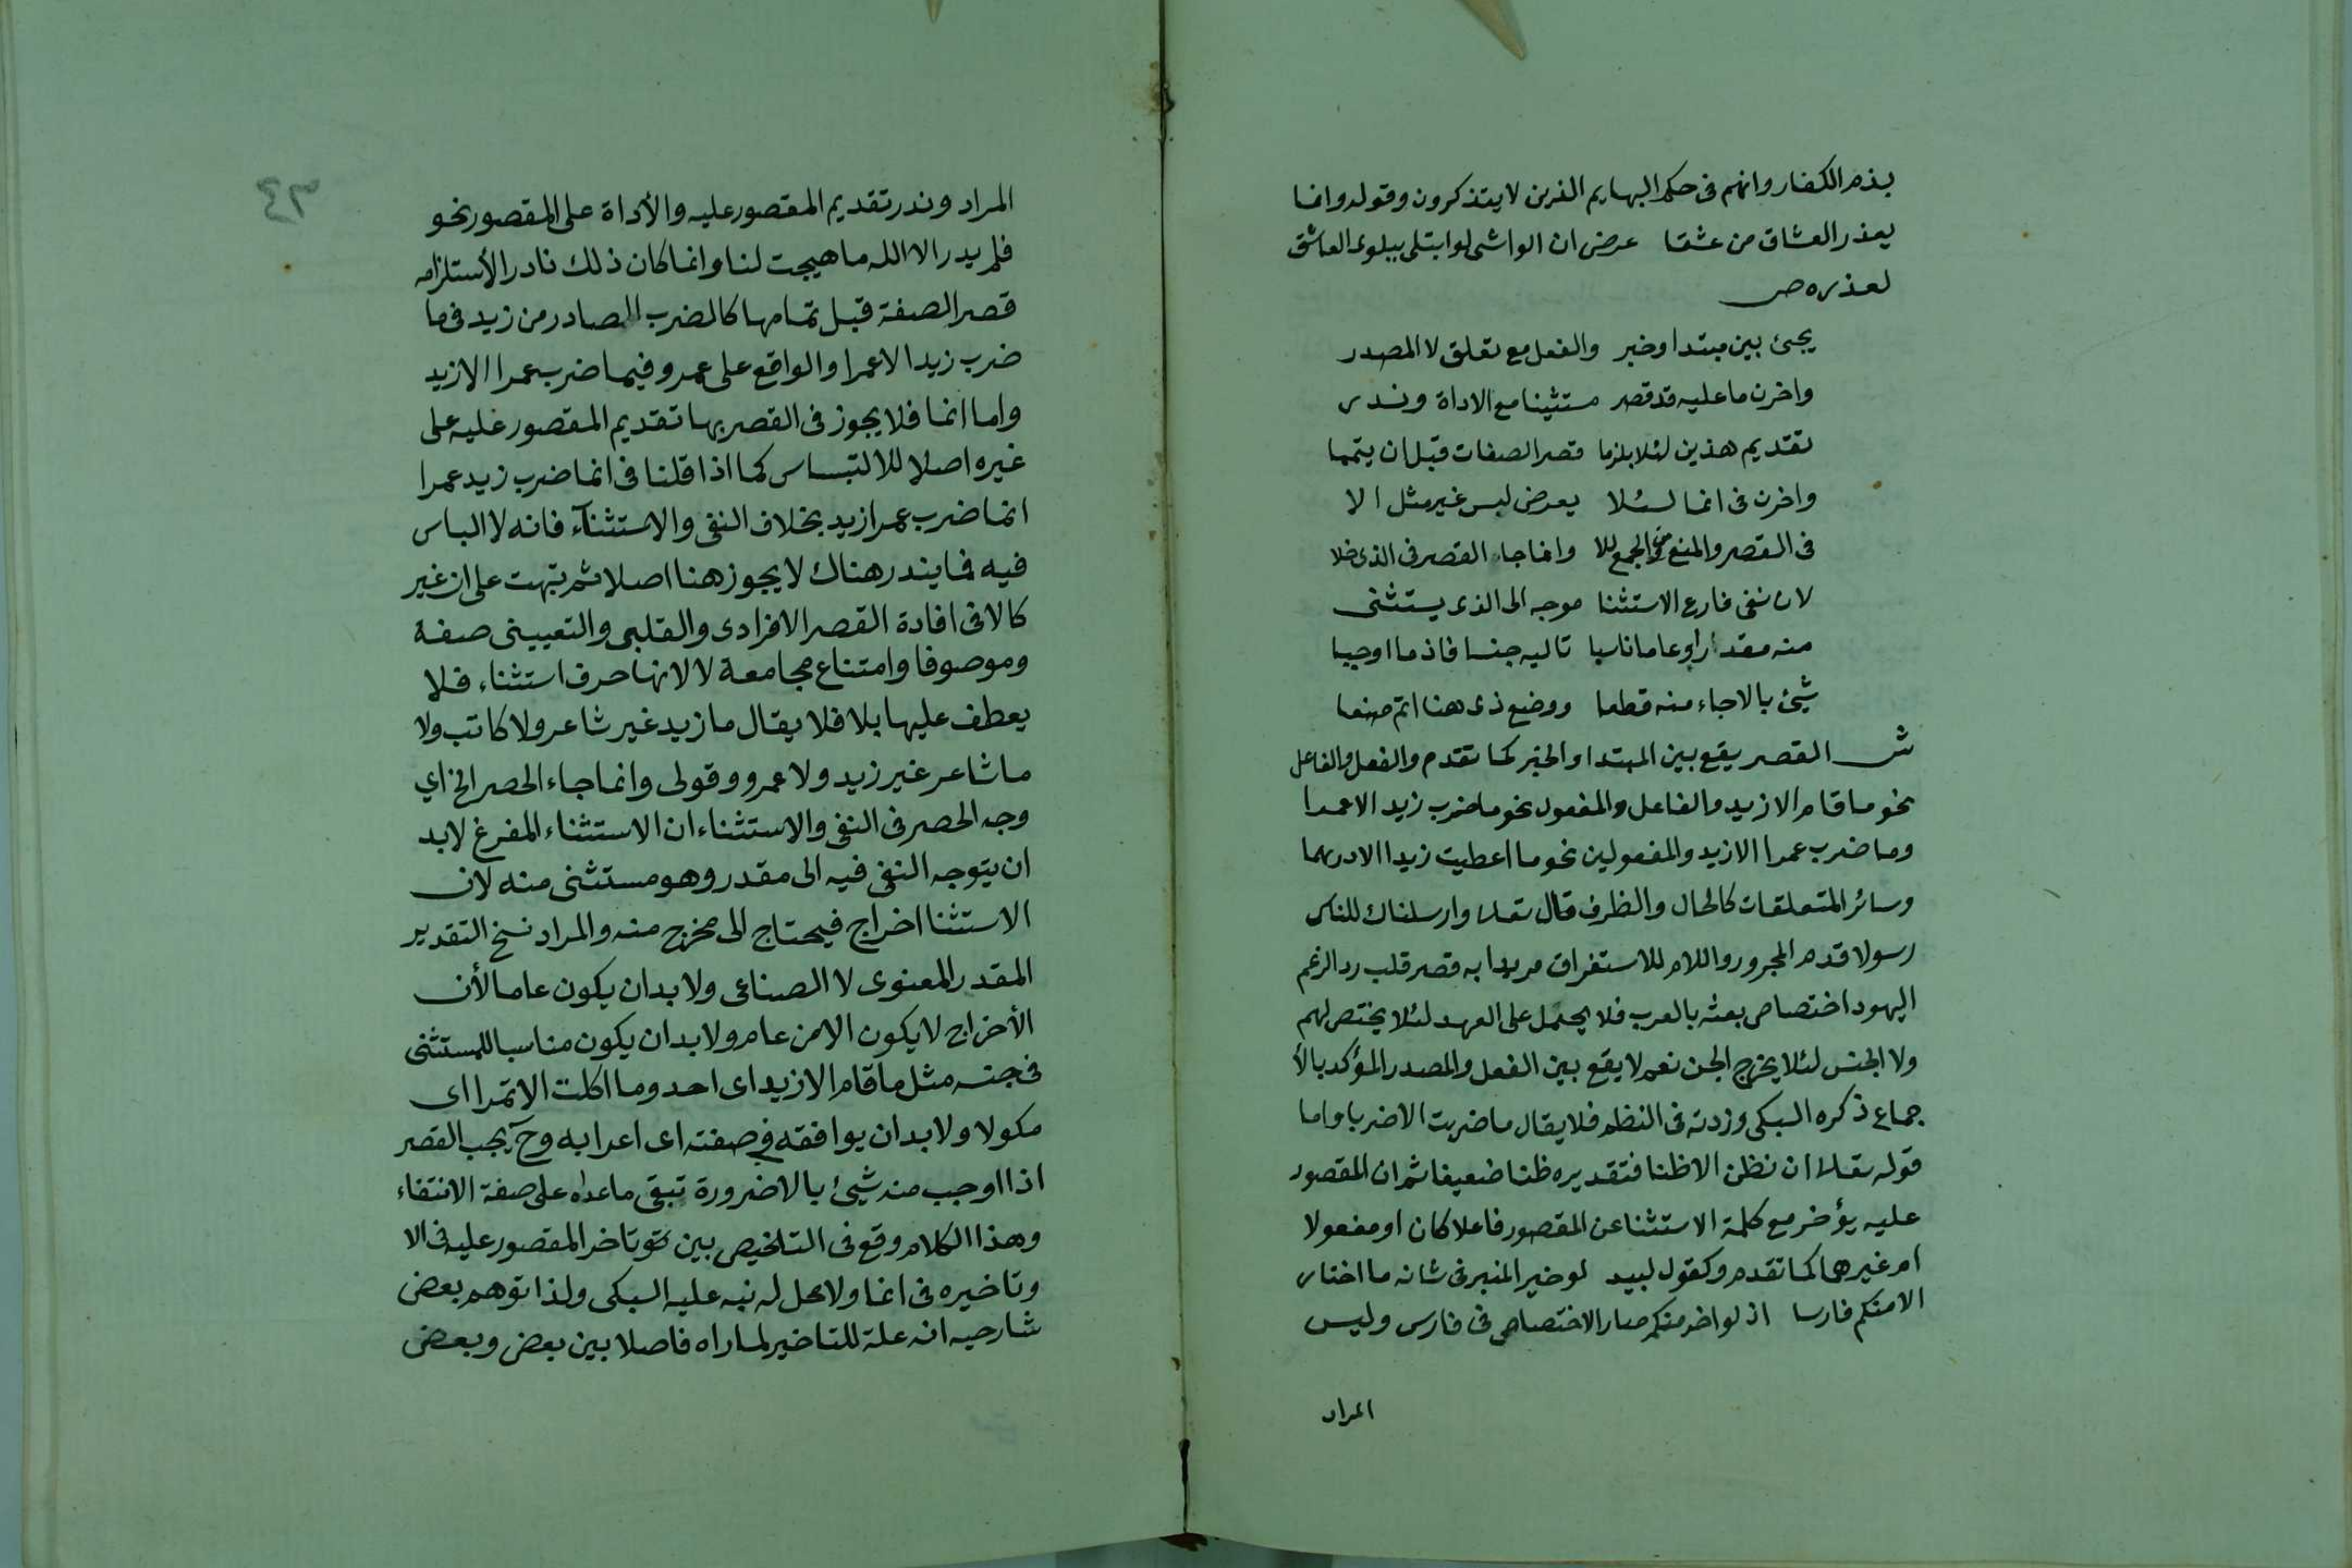 بذم الكفار وانهم فى حكم البهايم الذين لا يتذكرون وقوله وانما
يعذر العشاق من عشقا عرض ان الواشى لو ابتلى ببلوى العاشق
لعذره ص
يجئ بين مبتدا وخبر والفعل مع تعلق لا المصدر
واخرن ما عليه قد قصر مستثينا مع الاداة وندر
تقديم هذين لئلا يلزما قصر الصفات قبل ان يتمما
واخرن فى انما لئلا يعرض لبس غير مثل الا
فى القصر والمنع من الجمع للا وانما جاء القصر فى الذى خلا
لان نفى فارع الاستثنا موجه الى الذى يستثنى
منه مقدارا وعاما ناسبا تاليه جنسا فاذ ما اوجبا
شئ بالا جاء منه قطعا ووضع ذى هنا اتم صنعا
ش القصر يقع بين المبتدا والخبر كما تقدم والفعل والفاعل
نحو ما قام الا زيد والفاعل والمفعول نحو ما ضرب زيد الا عمرا
وما ضرب عمرا الا زيد والمفعولين نحو ما اعطيت زيدا الا درهما
وسائر المتعلقات كالحال والظرف قال تعلى وارسلناك للناس
رسولا قدم المجرور واللام للاستغراق مريدا به قصر قلب رد الزعم
اليهود اختصاص بعثه بالعرب فلا يحتمل على العهد لئلا يختص لهم
ولا الجنس لئلا يخرج الجن نعم لا يقع بين الفعل والمصدر المؤكد بالأ
جماع ذكره السبكى وزدته فى النظم فلا يقال ما ضربت الا ضربا واما
قوله تعلى ان نظن الا ظنا فتقديره ظنا ضعيفا ثم ان المقصور
عليه يؤخر مع كلمة الاستثنا عن المقصور فاعلا كان او مفعولا
ام غيرهما كما تقدم وكقول لبيد لو خير المنبر فى شانه ما اختار
الا منكم فارسا اذ لو اخر منكم صار الاختصاص فى فارس وليس
المراد
٤٣
المراد وندر تقديم المقصور عليه والأداة على المقصور نحو
فلم يدر الا الله ما هيجت لنا وانما كان ذلك نادر الأستلزامه
قصر الصفة قبل تمامها كالضرب الصادر من زيد فى ما
ضرب زيد الا عمرا والواقع على عمرو فيما ضرب عمرا الا زيد
واما انما فلا يجوز فى القصر بها تقديم المقصور عليه على
غيره اصلا للالتباس كما اذا قلنا فى انما ضرب زيد عمرا
انما ضرب عمرا زيد بخلاف النفى والاستثنآء فانه لا الباس
فيه فما يندر هناك لا يجوز هنا اصلا ثم نبهت على ان غير
كالا فى افادة القصر الافرادى والقلبى والتعيينى صفة
وموصوفا وامتناع مجامعة لا لانها حرف استثناء فلا
يعطف عليها بلا فلا يقال ما زيد غير شاعر ولا كاتب ولا
ما شاعر غير زيد ولا عمرو وقولى وانما جاء الحصر الخ اي
وجه الحصر فى النفى والاستثناء ان الاستثناء المفرغ لابد
ان يتوجه النفى فيه الى مقدر وهو مستثنى منه لان
الاستثنا اخراج فيحتاج الى مخرج منه والمراد نخ التقدير
المقدر المعنوى لا الصناعى ولابد ان يكون عاما لأن
الأخراج لا يكون الا من عام ولابد ان يكون مناسبا للمستثنى
فى جنسه مثل ما قام الا زيد اى احد وما اكلت الا تمرا اى
مكولا ولابد ان يوافقه فى صفته اى اعرابه وح يجب القصر
اذا اوجب منه شئ بالا ضرورة تبقى ما عداه على صفة الانتفاء
وهذا الكلام وقع فى التلخيص بين تاخر المقصور عليه فى الا
وتاخيره فى انما ولا محل له نبه عليه السبكى ولذا توهم بعض
شارحيه انه علة للتاخير لما راه فاصلا بين بعض وبعض